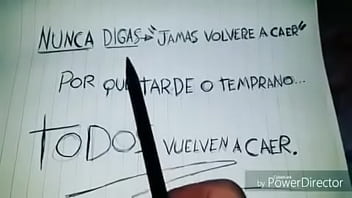 NUNCA DIGAS "JAMAS VOLVERE A CAER"
POR QUE TARDE O TEMPRANO...
TODOS VUELVEN A CAER.
by PowerDirector